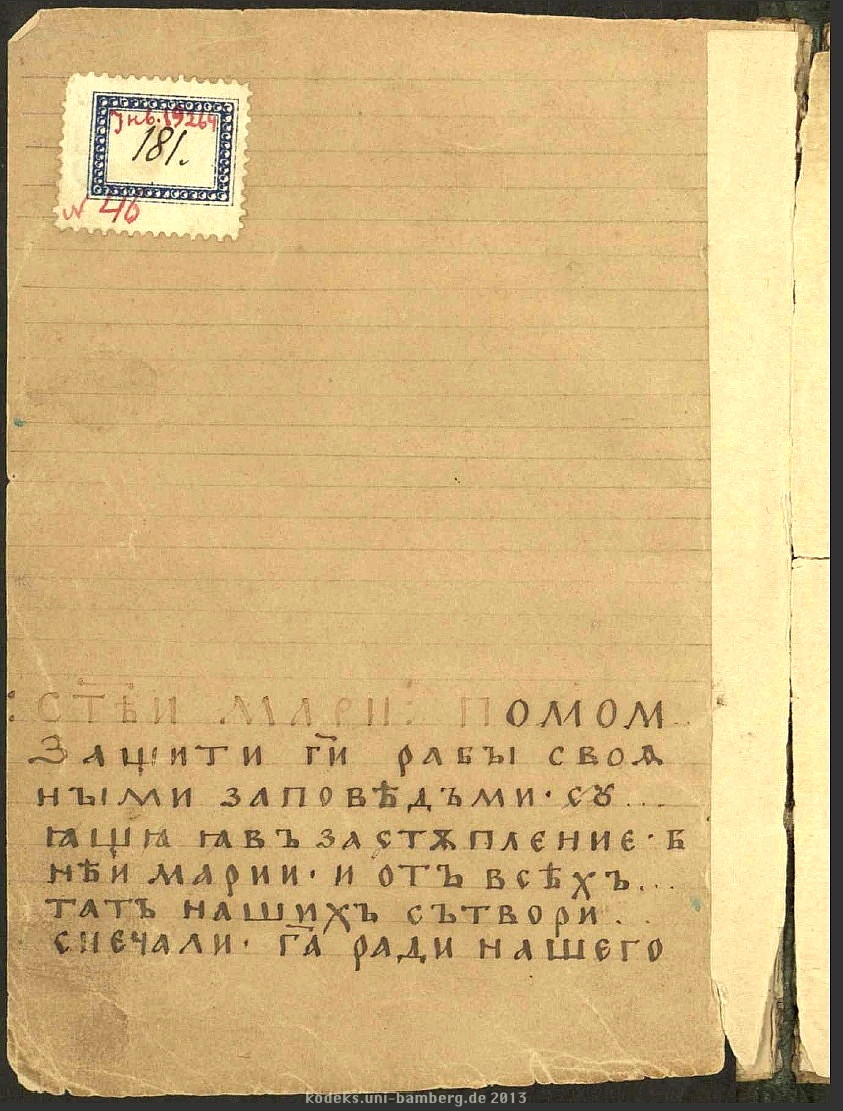 Інв. 19264
181.
№ 46
: СТ҃ѢИ МАРИ: ПОМОМ
ЗАЩИТИ Г҃И РАБЫ СВОѦ
НЫМИ ЗАПОВѢДЪМИ · СꙊ ...
ꙖЩꙖ ꙖВЪ ЗАСТѪПЛЕНИЕ · Б
НѢИ МАРИИ · И ОТЪ ВСѢХЪ ...
ТАТЪ НАШИХЪ СЪТВОРИ . .
СПЕЧАЛИ · Г҃А РАДИ НАШЕГО
kodeks.uni-bamberg.de 2013